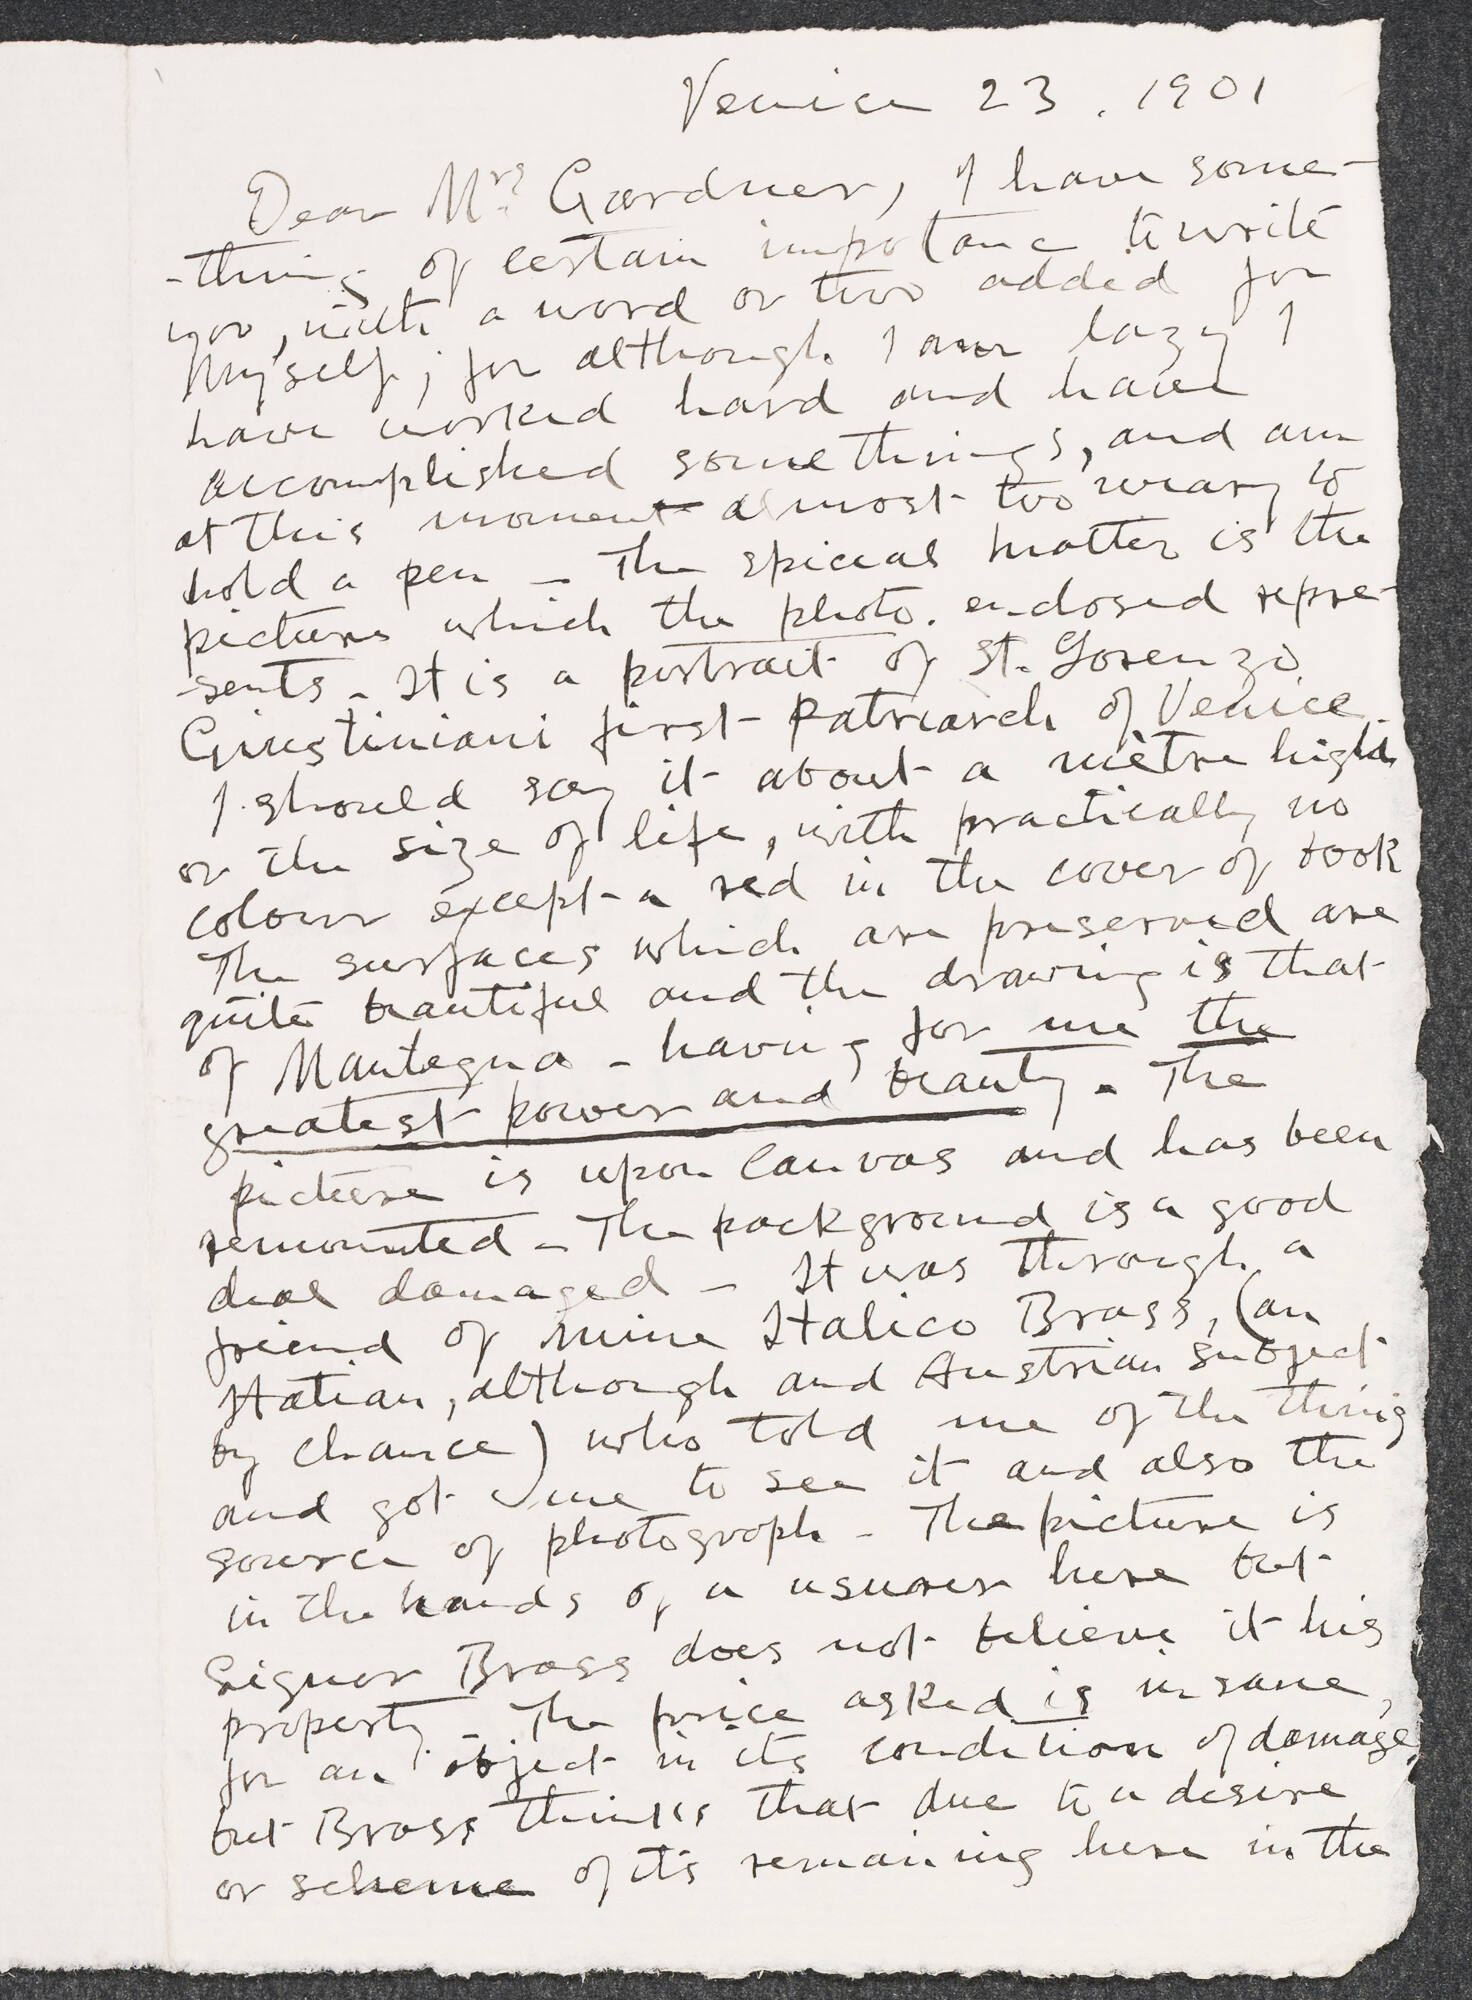 Venice 23. 1901
Dear Mrs. Gardner, I have some-
-thing of certain importance to write
you, with a word or two added for
myself; for although I am lazy I
have worked hard and have
accomplished somethings, and am
at this moment almost too weary to
hold a pen – The special matter is the
picture which the photo. enclosed repre-
-sents – It is a portrait of St. Lorenzo
Giustiniani first Patriarch of Venice.
I should say it about a mètre high
or the size of life, with practically no
colour except a red in the cover of book
The surfaces which are preserved are
quite beautiful and the drawing is that
of Mantegna – having for me the
greatest power and beauty – The
picture is upon canvas and has been
remounted – The background is a good
deal damaged – It was through a
friend of mine Italico Brass, (an
Italian, although and Austrian subject
by chance) who told me of the thing
and got me to see it and also the
source of photograph – The picture is
in the hands of a usurer here but
Signor Brass does not believe it his
property – The price asked is insane,
for an object in its condition of damage,
but Brass thinks that due to a desire
or scheme of its remaining here in the